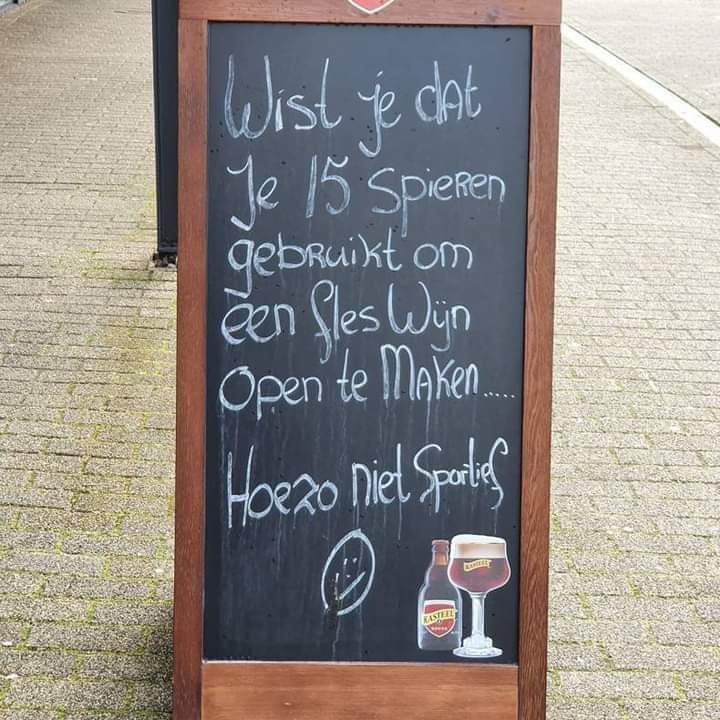 Wist je dat
Je 15 spieren
gebruikt om
een fles Wijn
open te Maken.....
Hoezo niet Sportief
KASTEEL
KASTEEL
ROUGE